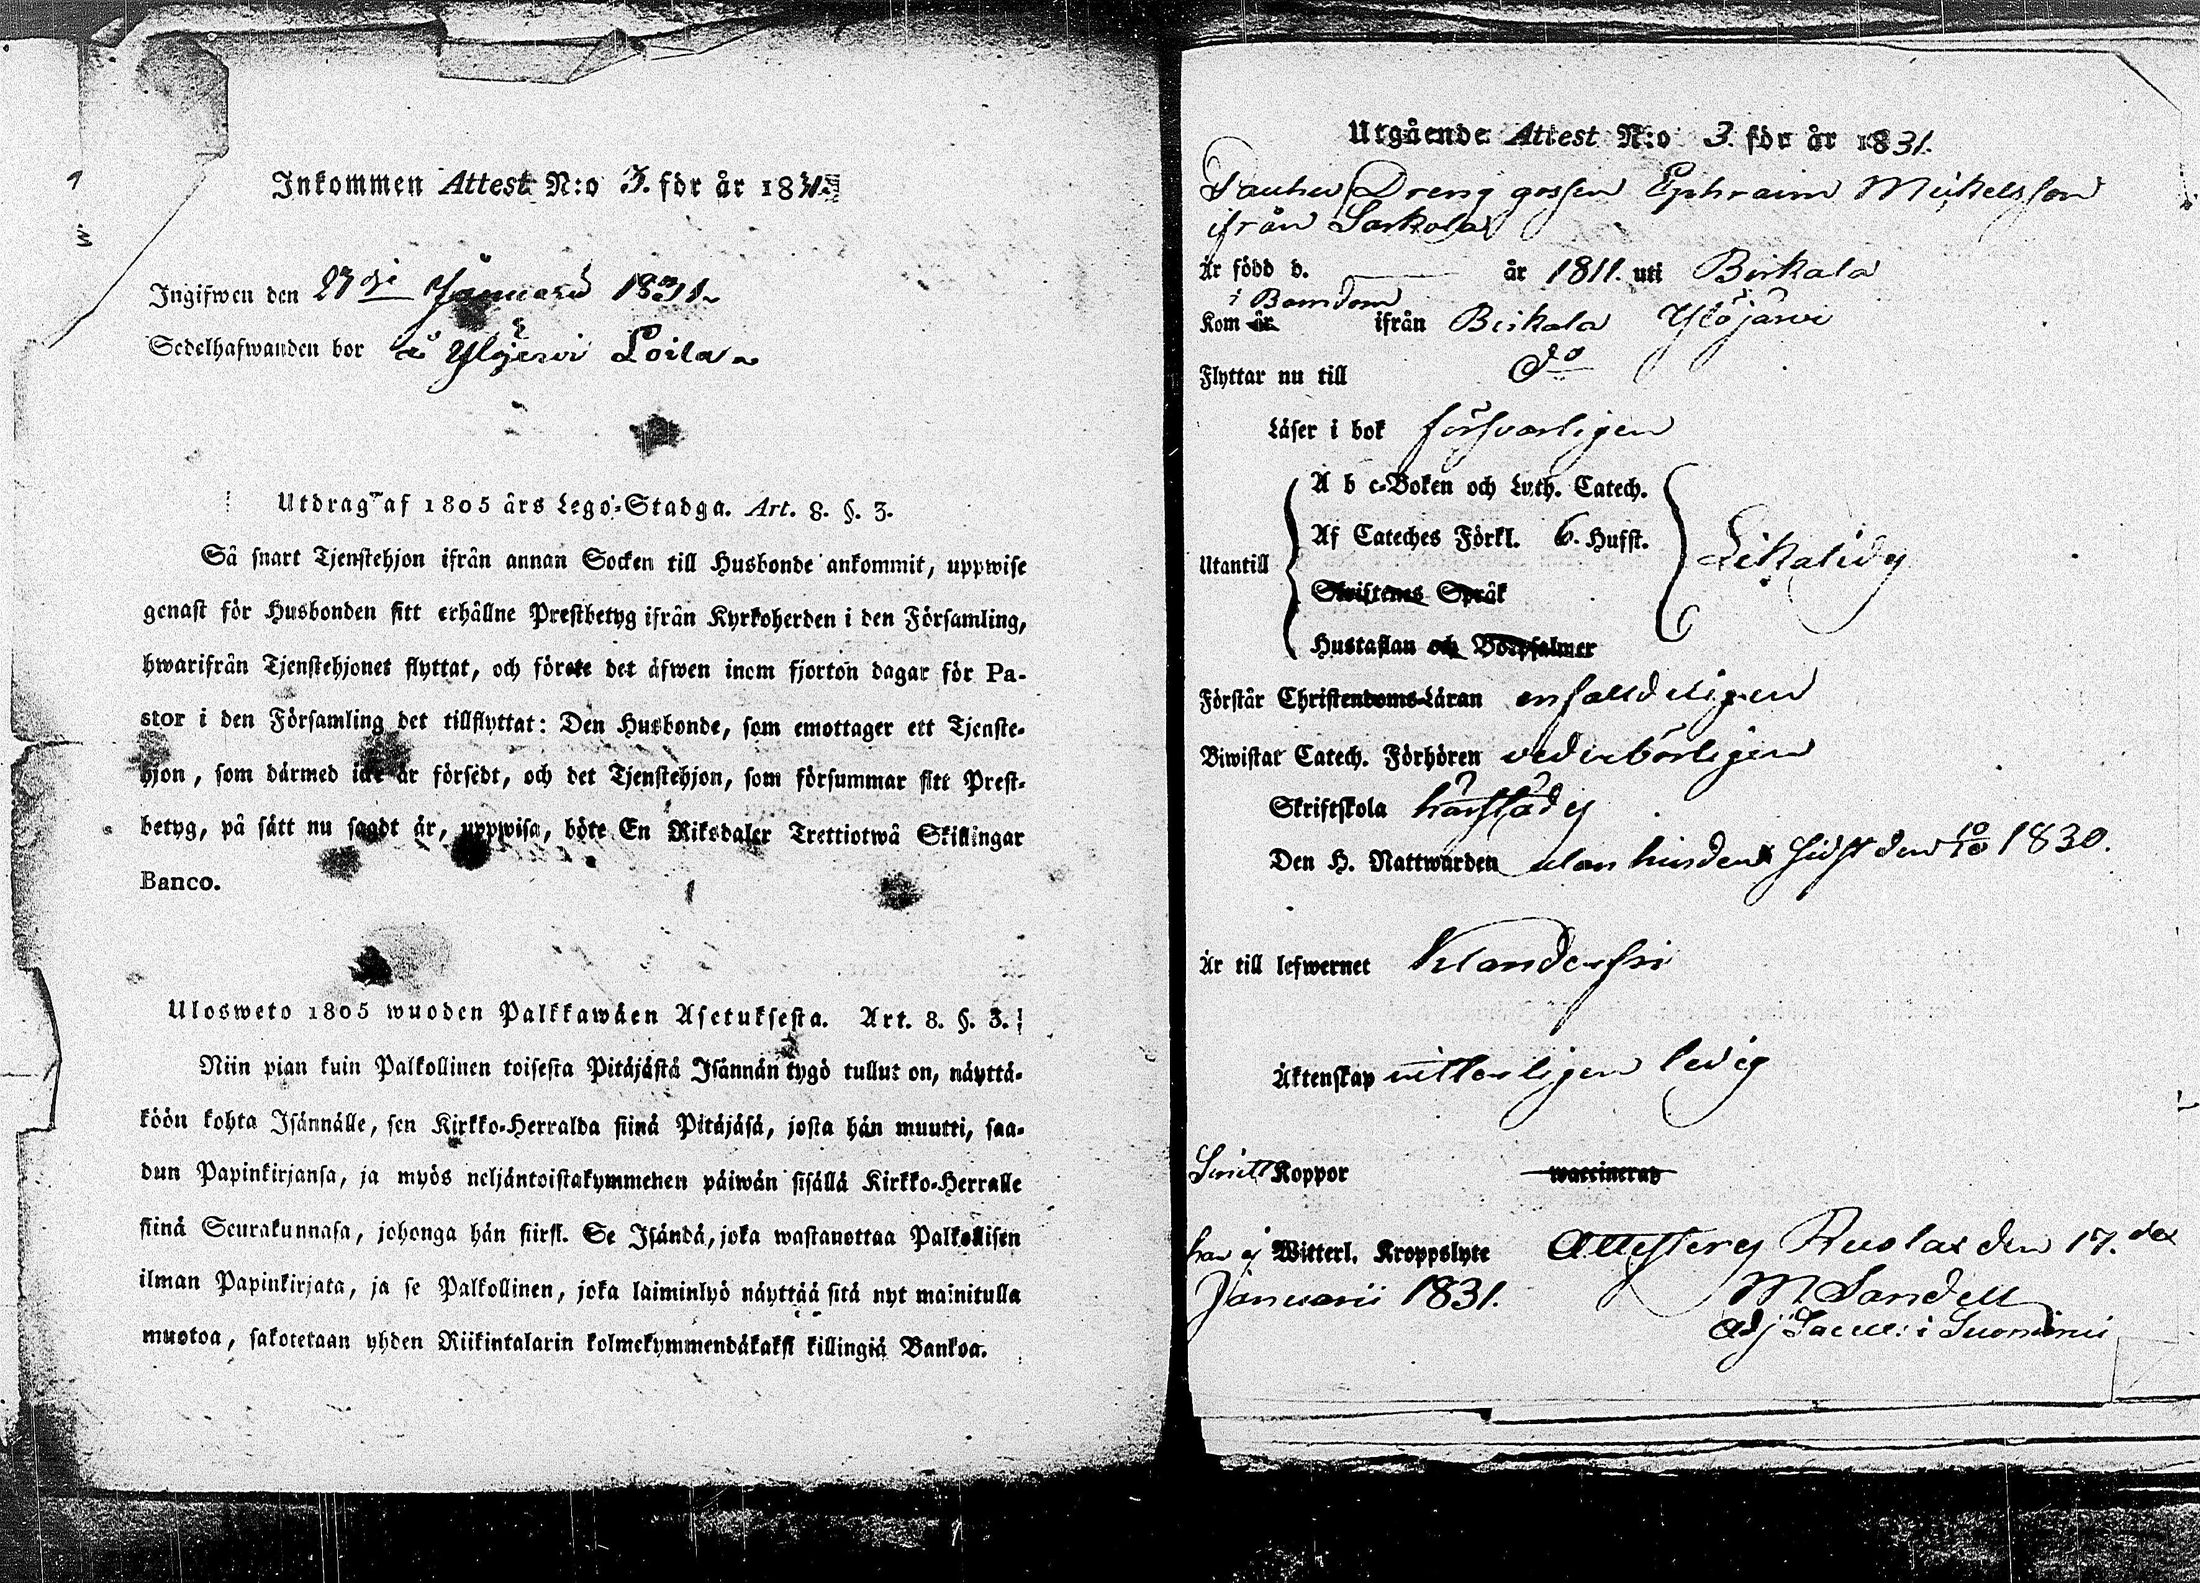 Inkommen Attest N:o 3. för år 1831.
Ingifwen den 27de Januarii 1831.
Sedelhafwanden bor i Ylöjerwi Loila
Utdrag af 1805 års Lego-Stadga. Art. 8. §. 3.
Så snart Tjenstehjon ifrån annan Socken till Husbonde ankommit, uppwise
genast för Husbonden sitt erhållne Prestbetyg ifrån Kyrkoherden i den Församling,
hwarifrån Tjenstehjonet flyttat, och förete det äfwen inom fjorton dagar för Pa-
stor i den Församling det tillflyttat: Den Husbonde, som emottager ett Tjenste-
hjon, som därmed icke är försedt, och det Tjenstehjon, som försummar sitt Prest-
betyg, på sätt nu sagdt är, uppwisa, böte En Riksdaler Trettiotwå Skillingar
Banco.
Ulosweto 1805 wuoden Palkkawäen Asetuksesta. Art. 8. §. 3.
Niin pian kuin Palkollinen toisesta Pitäjästä Isännän tygö tullut on, näyttä-
köön kohta Isännälle, sen Kirkko-Herralda siinä Pitäjäsä, josta hän muutti, saa-
dun Papinkirjansa, ja myös neljäntoistakymmenen päiwän sisällä Kirkko-Herralle
siinä Seurakunnasa, johonga hän siirsi. Se Isändä, joka wastanottaa Palkollisen
ilman Papinkirjata, ja se Palkollinen, joka laiminlyö näyttää sitä nyt mainitulla
muotoa, sakotetaan yhden Riikintalarin kolmekymmendäkaksi killingiä Bankoa.
Utgående Attest N:o 3. för år 1831.
Dreng gossen Ephraim Mickelsson
ifrån Sarkola
Är född d. år 1811. uti Birkala
i Barndom
Kom år ifrån Birkala Ylöjärvi
Flyttar nu till do
Läser i bok försvarligen
A b c-Boken och Luth. Catech.
Af Cateches Förkl. 6. Hufst.
Utantill
Likaledes
Skriftenes Språk
Hustaflan och Botpsalmer
Förstår Christendoms-Läran enfaldeligen
Biwistar Catech. Förhören vederbörligen
Skriftskola härstädes
Den H. Nattwarden utan hinder sidst den 10/10 1830.
Är till lefwernet klanderfri
Äktenskap witterligen ledig
Smitt Koppor waccinerad
har ej Witterl. Kroppslyte Attesterer den 17. de
Januarii 1831. M Sandell
Adj